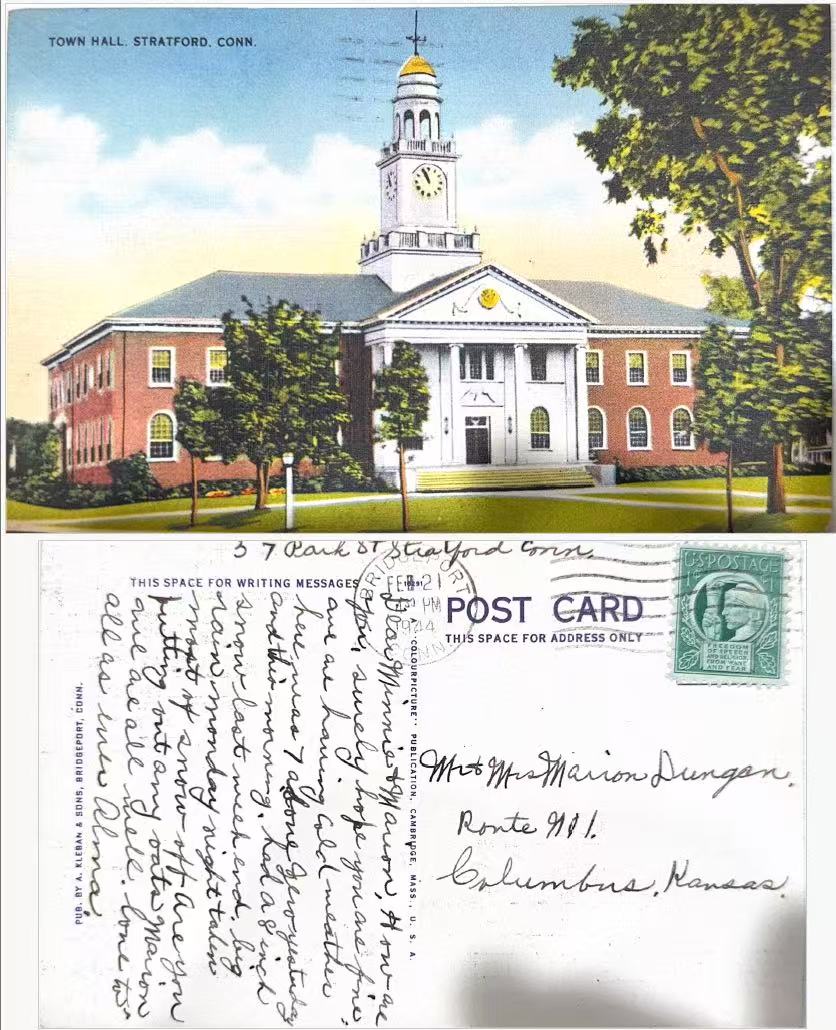 TOWN HALL, STRATFORD, CONN.
37 Park St Stratford Conn.
THIS SPACE FOR WRITING MESSAGES
BRIDGEPORT
FEB 21
PM
1944
CONN.
POST CARD
THIS SPACE FOR ADDRESS ONLY
U.S. POSTAGE
1¢ 1¢
FREEDOM
OF SPEECH
AND RELIGION,
FROM WANT
AND FEAR
Dear Minnie & Marion, How are
you, surely hope you are fine.
we are having cold weather
here was 7 above zero yesterday
and this morning. had a 8 inch
snow last week end, big
rain monday night taken
most of snow off. Are you
putting out any oats Marion
we are all well. Love to
all as ever Alma.
"COLOURPICTURE" PUBLICATION, CAMBRIDGE, MASS., U. S. A.
PUB. BY A. KLEBAN & SONS, BRIDGEPORT, CONN.
Mr & Mrs Marion Dungan.
Route No 1.
Columbus, Kansas.